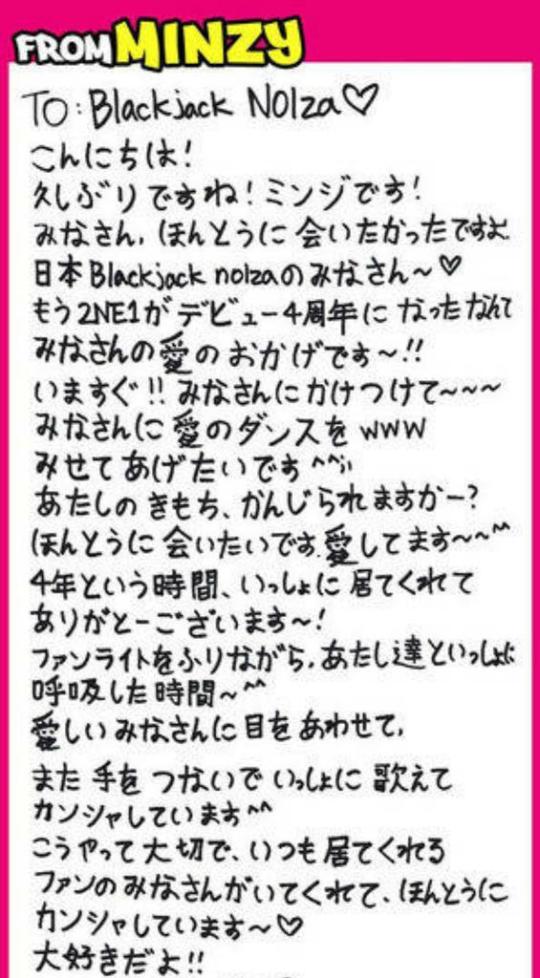 FROM MINZY
TO: Blackjack NOlza♡
こんにちは!
久しぶりですね!ミンジです!
みなさん、ほんとうに会いたかったですよ
日本Blackjack nolzaのみなさん~♡
もう2NE1がデビュー4周年になったなんて
みなさんの愛のおかげです~!!
いますぐ!!みなさんにかけつけて~~~
みなさんに愛のダンスをwww
みせてあげたいです^^;;
あたしのきもち、かんじられますかー?
ほんとうに会いたいです.愛してます~~^^
4年という時間、いっしょに居てくれて
ありがとーございます~!
ファンライトをふりながら、あたし達といっしょに
呼吸した時間~^^
愛しいみなさんに目をあわせて、
また手をつないでいっしょに歌えて
カンシャしています^^
こうやって大切で、いつも居てくれる
ファンのみなさんがいてくれて、ほんとうに
カンシャしています~♡
大好きだよ!!